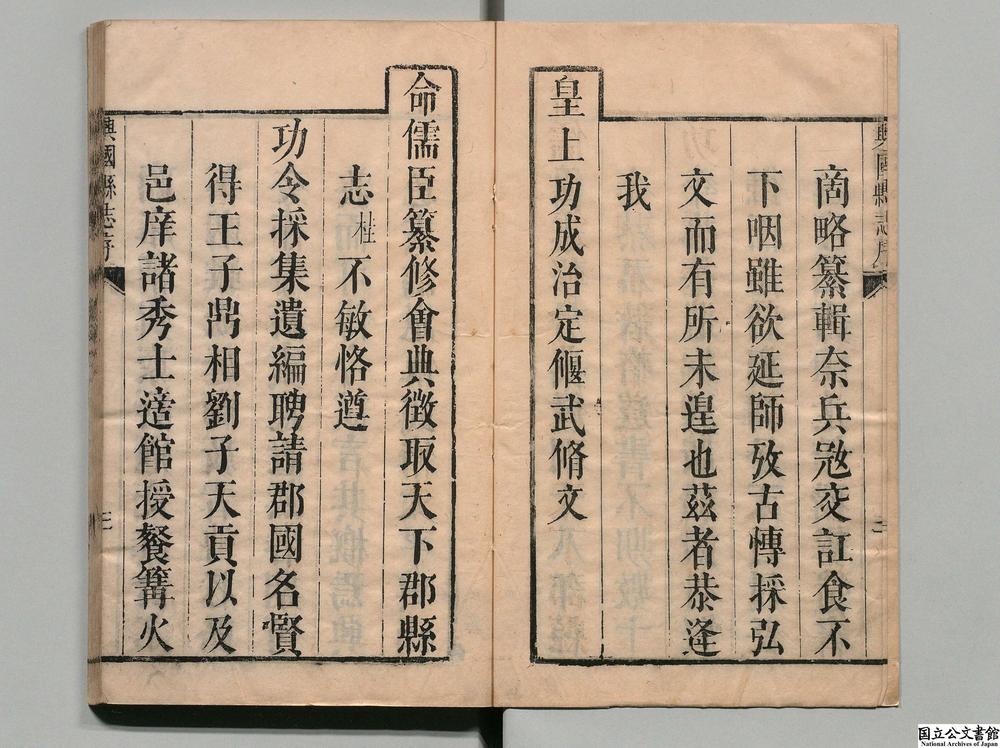 興國縣志序
商略纂輯奈兵寇交訌食不
下咽雖欲延師攷古博採弘
文而有所未遑也茲者恭逢
我
皇上功成治定偃武脩文
二
命儒臣纂修會典徵取天下郡縣
志
桂
不敏恪遵
功令採集遺編聘請郡國名賢
得王子鼎相劉子天貢以及
邑庠諸秀士適館授餐篝火
興國縣志序
三
国立公文書館
National Archives of Japan